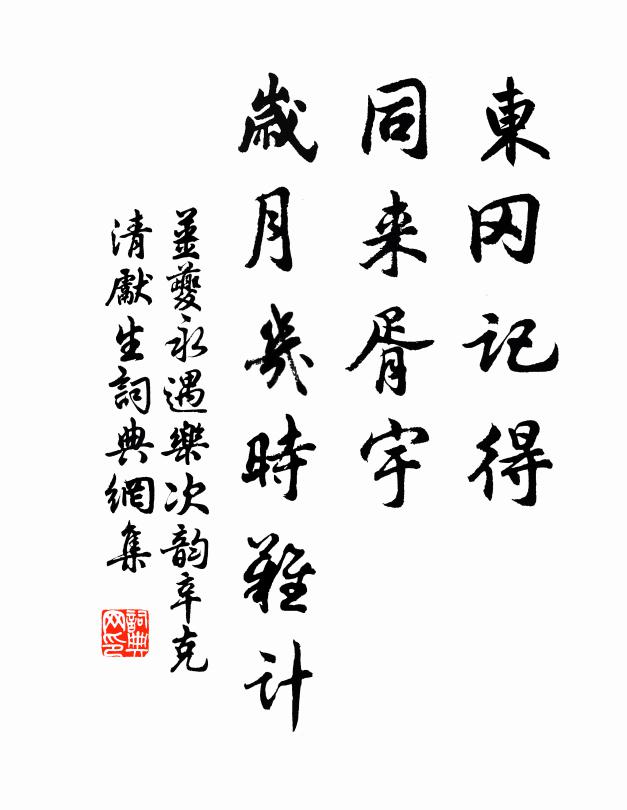 東冈記得
同来胥宇
歲月幾時難計
姜夔永遇樂次韵辛克
清獻生詞典網集
詞典
网印